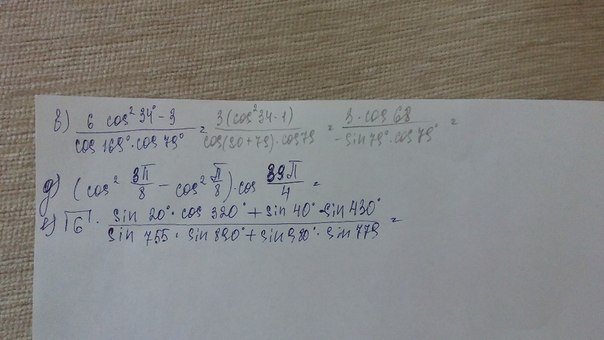 в) (6 cos² 34° - 3)/(cos 169° · cos 79°) = 3(cos² 34 - 1)/(cos(90 + 79) · cos 79) = 3 · cos 68/(-sin 79° · cos 79°) =
д) (cos² 3π/8 - cos² π/8) · cos 39π/4 =
е) √6 · (sin 20° · cos 320° + sin 40° · sin 430°)/(sin 755 · sin 890° + sin 980° · sin 775) =